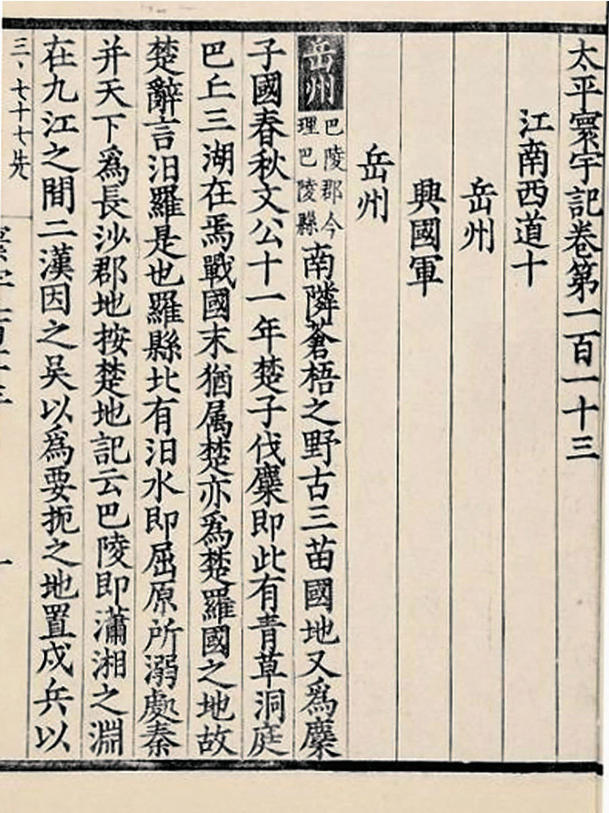 太平寰宇記卷第一百一十三
江南西道十
岳州
興國軍
岳州
岳州巴陵郡今理巴陵縣南隣蒼梧之野古三苗國地又爲麋
子國春秋文公十一年楚子伐麋即此有青草洞庭
巴丘三湖在焉戰國末猶属楚亦爲楚羅國之地故
楚辭言汨羅是也羅縣北有汨水即屈原所溺處秦
并天下爲長沙郡地按楚地記云巴陵即瀟湘之淵
在九江之間二漢因之吴以爲要扼之地置戍兵以
三、七十七先
一